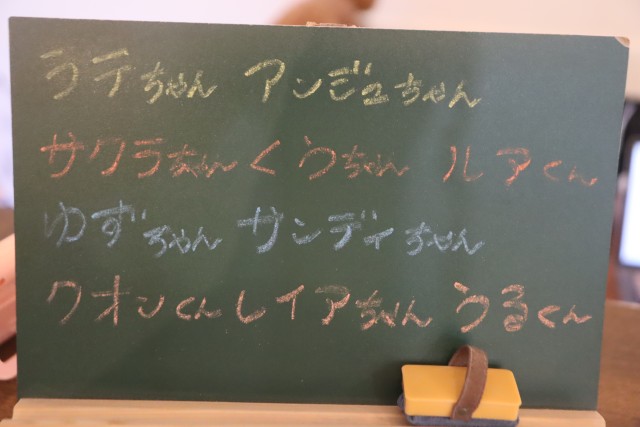 ラテちゃん アンジュちゃん
サクラちゃん くうちゃん ルアくん
ゆずちゃん サンディちゃん
クオンくん レイアちゃん うるくん